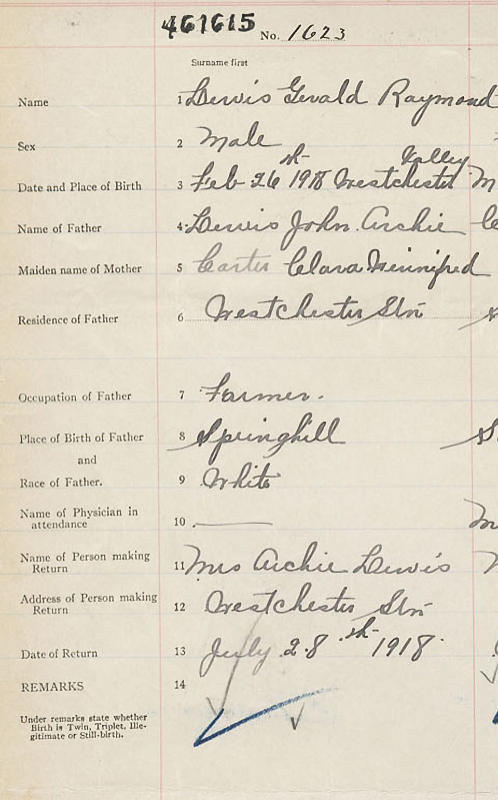 461615
No. 1623
Surname first
Name 1 Lewis Gerald Raymond
Sex 2 Male
Valley
Date and Place of Birth 3 Feb 26th 1918 Westchester
Name of Father 4 Lewis John Archie
Maiden name of Mother 5 Carter Clara Winnifred
Residence of Father 6 Westchester Stn
Occupation of Father 7 Farmer.
Place of Birth of Father 8 Springhill
and
Race of Father. 9 White
Name of Physician in
attendance 10
Name of Person making
Return 11 Mrs Archie Lewis
Address of Person making
Return 12 Westchester Stn
Date of Return 13 July 28th 1918.
REMARKS 14
Under remarks state whether
Birth is Twin, Triplet, Ille-
gitimate or Still-birth.